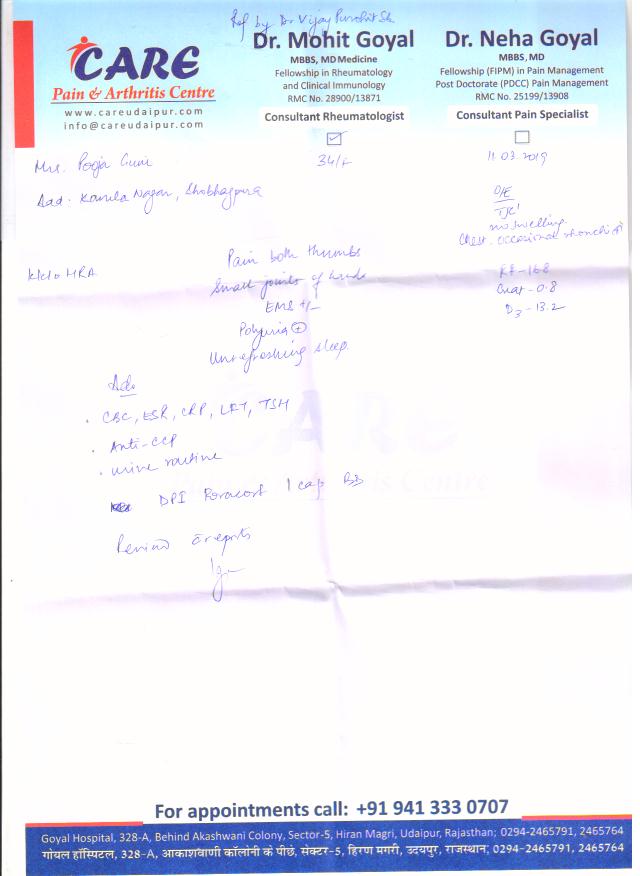 Ref by Dr Vijay Purohit Sb
CARE
Pain & Arthritis Centre
www.careudaipur.com
info@careudaipur.com
Dr. Mohit Goyal
MBBS, MD Medicine
Fellowship in Rheumatology
and Clinical Immunology
RMC No. 28900/13871
Consultant Rheumatologist
Dr. Neha Goyal
MBBS, MD
Fellowship (FIPM) in Pain Management
Post Doctorate (PDCC) Pain Management
RMC No. 25199/13908
Consultant Pain Specialist
Mrs. Pooja
34/F
11.03.2019
Add: Kamla Nagar, Shobhagpura
O/E
no swelling
Chest. occasional rhonchi
K/c/o HRA
Pain both thumbs
Small joints of hands
EMS +/-
Polyuria +
Unrefreshing sleep
RF-168
Creat-0.8
D3-13.2
Adv
. CBC, ESR, CRP, LFT, TSH
. Anti-CCP
. urine routine
DPI Foracort 1 cap BD
Review c reports
CARE
For appointments call: +91 941 333 0707
Goyal Hospital, 328-A, Behind Akashwani Colony, Sector-5, Hiran Magri, Udaipur, Rajasthan; 0294-2465791, 2465764
गोयल हॉस्पिटल, 328-A, आकाशवाणी कॉलोनी के पीछे, सेक्टर-5, हिरण मगरी, उदयपुर, राजस्थान; 0294-2465791, 2465764